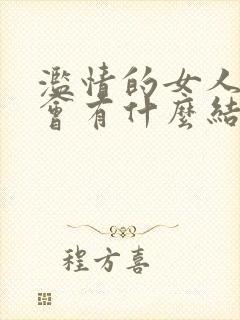 濫情的女人
會有什麼結
程方喜